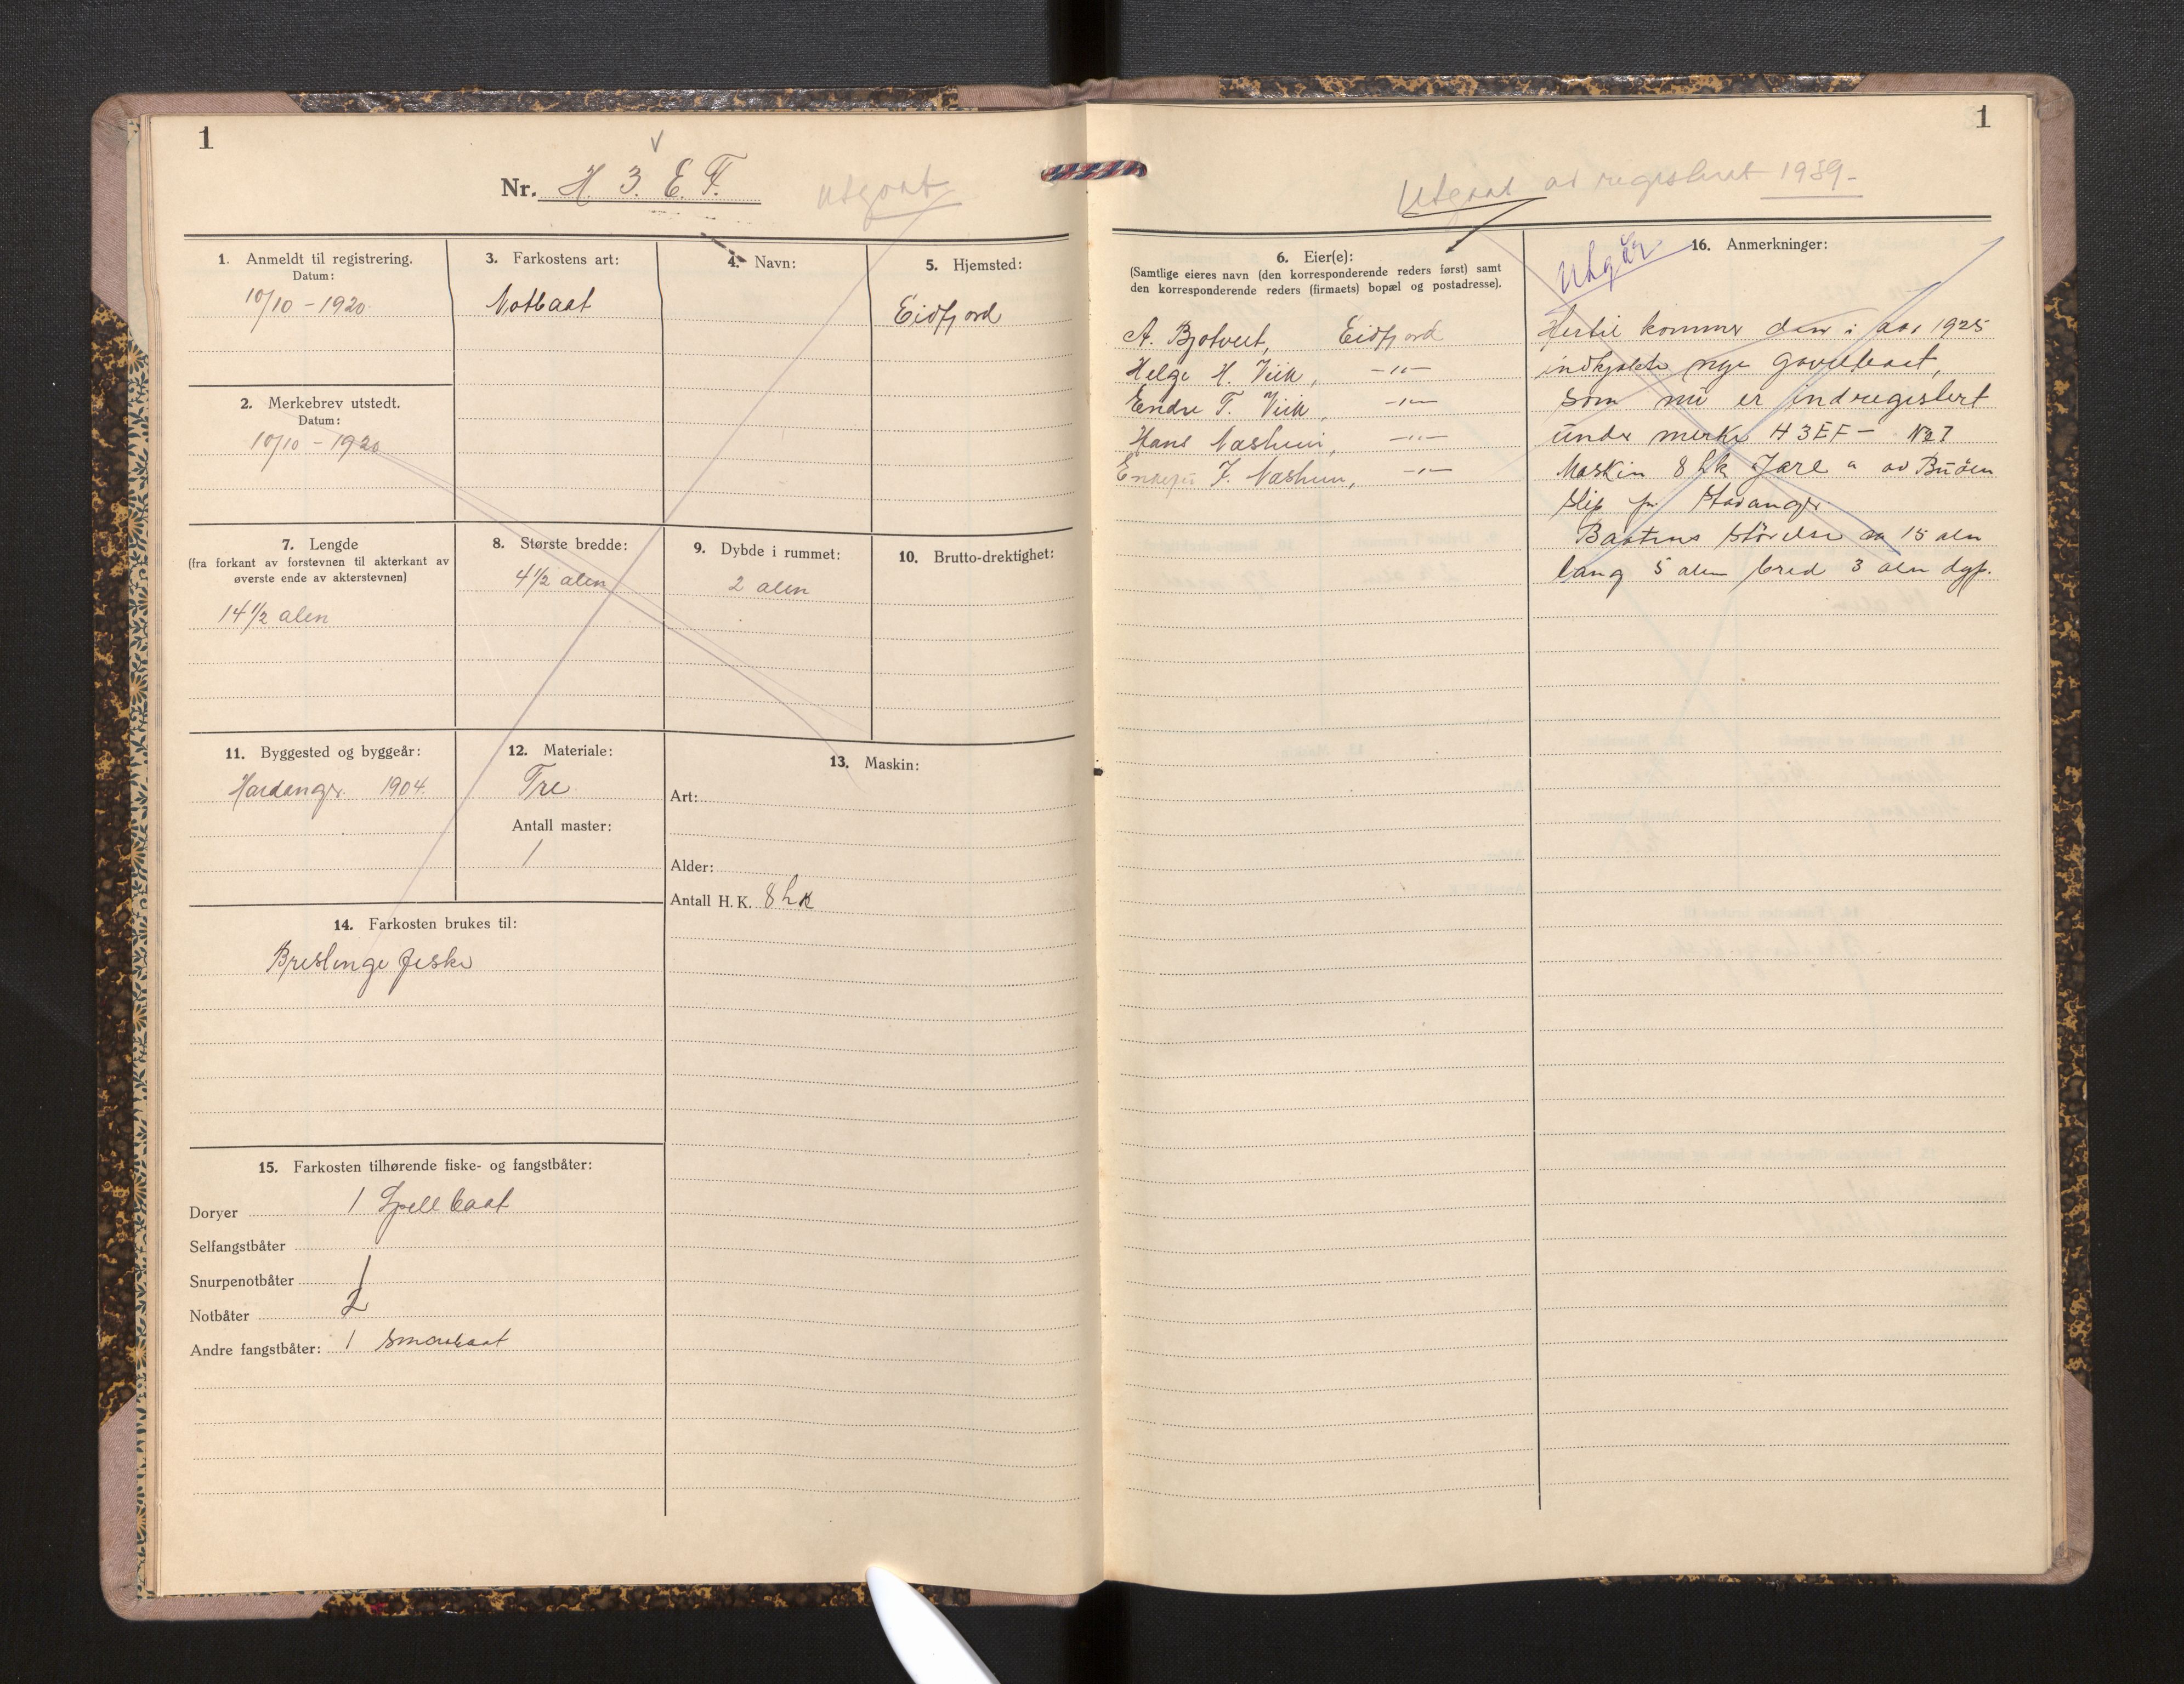 1
Nr. H. 3. E. F.
utgaat
1. Anmeldt til registrering.
Datum:
10/10 - 1920.
2. Merkebrev utstedt.
Datum:
10/10 - 1920
3. Farkostens art:
Notbaat
4. Navn:
5. Hjemsted:
Eidfjord
7. Lengde
(fra forkant av forstevnen til akterkant av
øverste ende av akterstevnen)
14 1/2 alen
8. Største bredde:
4 1/2 alen
9. Dybde i rummet:
2 alen
10. Brutto-drektighet:
11. Byggested og byggeår:
Hardanger. 1904.
12. Materiale:
Tre
Antall master:
1
13. Maskin:
Art:
Alder:
Antall H. K. 8 hk
14. Farkosten brukes til:
Brislingefiske
15. Farkosten tilhørende fiske- og fangstbåter:
Doryer 1 Spellbaat
Selfangstbåter
Snurpenotbåter
Notbåter
Andre fangstbåter: 1 Smaabaat
1
Utgaat av registeret 1939-
6. Eier(e):
(Samtlige eieres navn (den korresponderende reders først) samt
den korresponderende reders (firmaets) bopæl og postadresse).
A. Bjotveit, Eidfjord
Helge H. Viik, -"-
Endre T. Viik, -"-
Hans Næsheim, -"-
J. Næsheim, -"-
16. Anmerkninger:
Utgår
Hertil kommer den i aar 1925
indkjøbte nye gavlbaat,
som nu er indregistert
under merke H 3 EF - No 7
Maskin 8 hk Jarl a av Buøen
slip pr Stavanger
Baatens Størelse 15 alen
lang 5 alen bred 3 alen dyp.